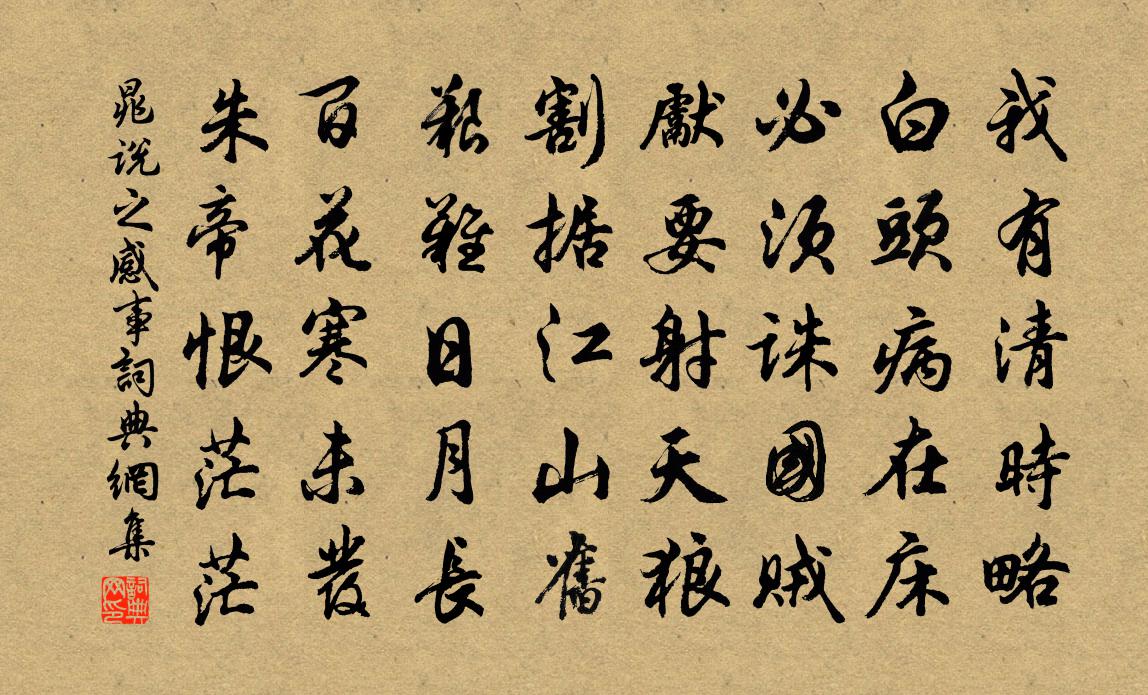 我有清時略
白頭病在床
必須誅國賊
獻要射天狼
割据江山舊
艱難日月長
百花寒未發
朱帝恨茫茫
晁說之感事詞典網集
詞典网印